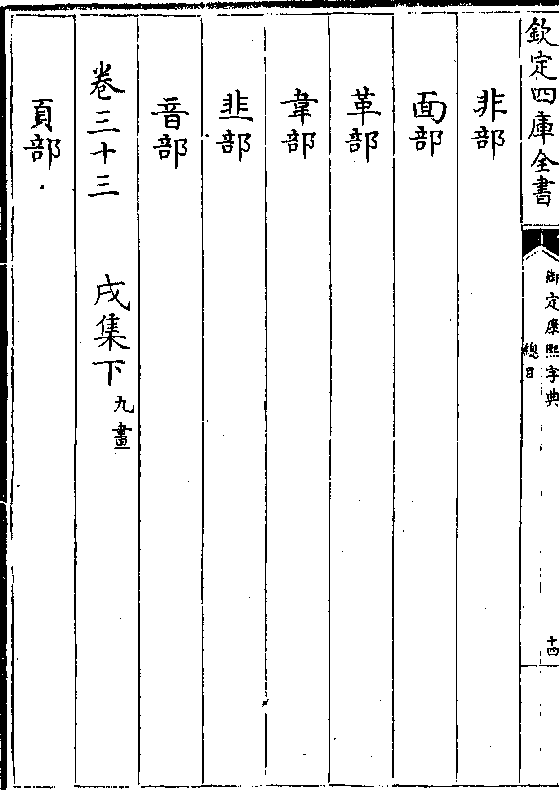 欽定四庫全書
御定康熙字典
總目
十四
非部
面部
革部
韋部
韭部
音部
卷三十三 戌集下九畫
頁部